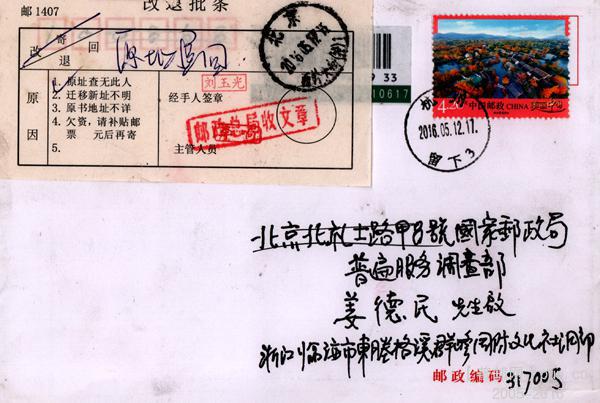 邮1407
改退批条
改 寄
退 回
原址退回
原因
1. 原址查无此人
2. 迁移新址不明
3. 原书地址不详
4. 欠资，请补贴邮
票 元后再寄
5.
经手人签章
刘玉光
主管人员
邮政总局收文章
北京
33
10617
4.20
中国邮政 CHINA
2016.05.12.17.
留下3
北京北礼士路甲8號國家郵政局
普遍服務調查部
姜德民 先生啟
浙江临海市東塍格溪群峰
邮政编码 317005